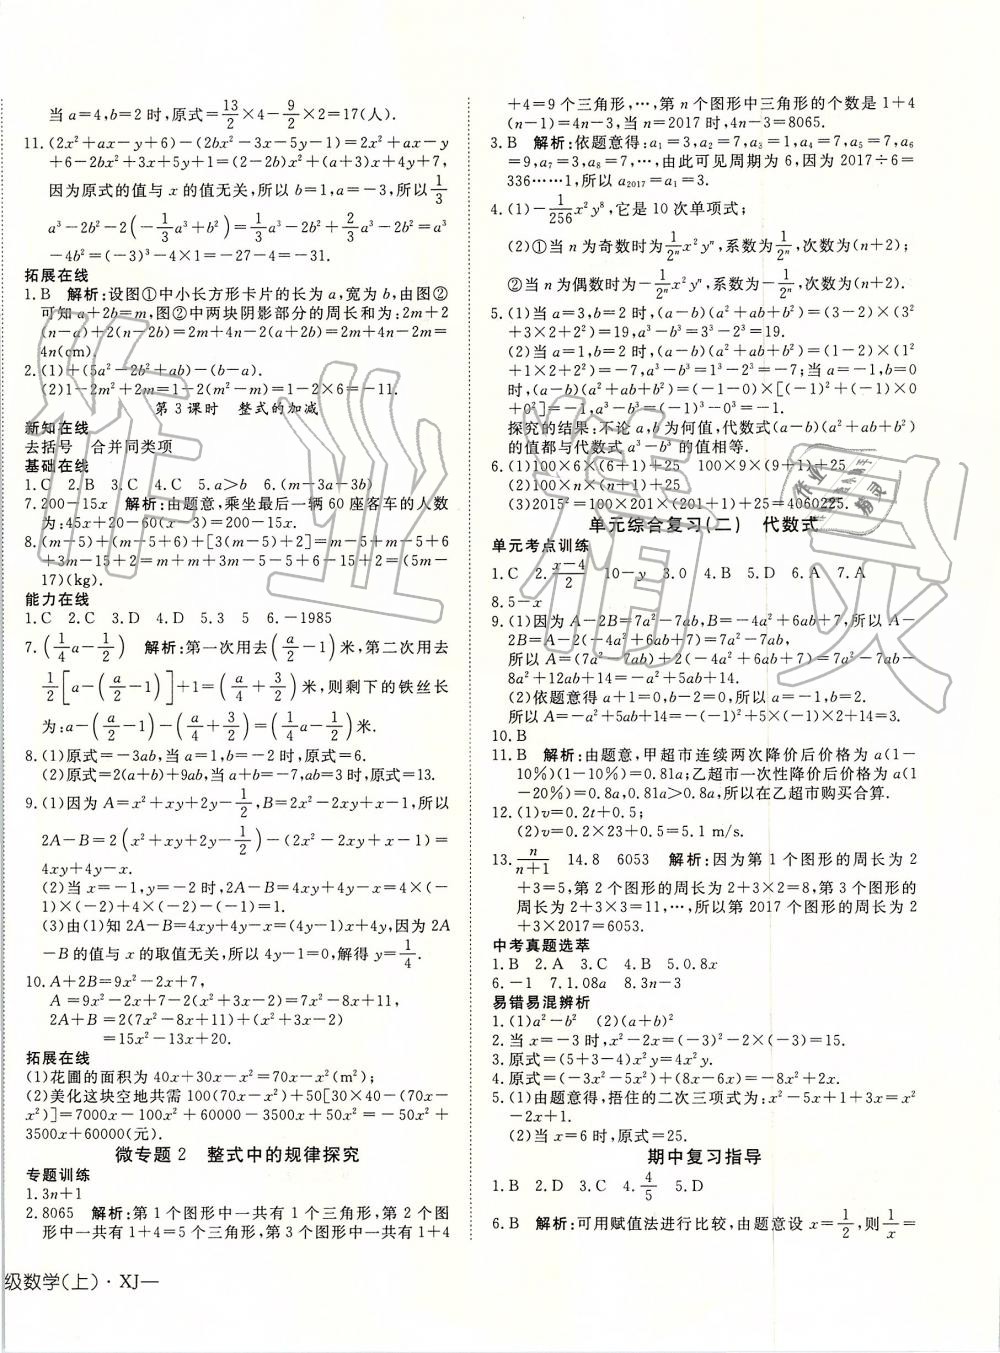 当 a=4,b=2 时,原式=13/2×4-9/2×2=17(人).
11.(2x²+ax-y+6)-(2bx²-3x-5y-1)=2x²+ax-y
+6-2bx²+3x+5y+1=(2-2b)x²+(a+3)x+4y+7,
因为原式的值与 x 的值无关,所以 b=1,a=-3,所以 1/3
a³-2b²-2(-1/3a³+b²)=1/3a³-2b²+2/3a³-2b²=a³
-4b²=(-3)³-4×1=-27-4=-31.
拓展在线
1.B 解析:设图①中小长方形卡片的长为 a,宽为 b,由图②
可知 a+2b=m,图②中两块阴影部分的周长和为:2m+2
(n-a)+2(n-2b)=2m+4n-2(a+2b)=2m+4n-2m=
4n(cm).
2.(1)+(5a²-2b²+ab)-(b-a).
(2)1-2m²+2m=1-2(m²-m)=1-2×6=-11.
第 3 课时 整式的加减
新知在线
去括号 合并同类项
基础在线
1.C 2.B 3.C 4.C 5.a>b 6.(m-3a-3b)
7.200-15x 解析:由题意,乘坐最后一辆 60 座客车的人数
为:45x+20-60(x-3)=200-15x.
8.(m-5)+(m-5)+6+[3(m-5)+2]=m-5+m-5+6
+3m-15+2=m+m+3m-5-5+6-15+2=(5m-
17)(kg).
能力在线
1.C 2.C 3.D 4.D 5.3 5 6.-1985
7.(1/4a-1/2) 解析:第一次用去(a/2-1)米,第二次用去
1/2[a-(a/2-1)]+1=(a/4+3/2)米,则剩下的铁丝长
为:a-(a/2-1)-(a/4+3/2)=(1/4a-1/2)米.
8.(1)原式=-3ab,当 a=1,b=-2 时,原式=6.
(2)原式=2(a+b)+9ab,当 a=1,b=2 时,原式=13.
9.(1)因为 A=x²+xy+2y-1/2,B=2x²-2xy+x-1,所以
2A-B=2(x²+xy+2y-1/2)-(2x²-2xy+x-1)=
4xy+4y-x.
(2)当 x=-1,y=-2 时,2A-B=4xy+4y-x=4×(-
1)×(-2)+4×(-2)-(-1)=1.
(3)由(1)知 2A-B=4xy+4y-x=(4y-1)x+4y,因为 2A
-B 的值与 x 的取值无关,所以 4y-1=0,解得 y=1/4.
10.A+2B=9x²-2x+7,
A=9x²-2x+7-2(x²+3x-2)=7x²-8x+11,
2A+B=2(7x²-8x+11)+(x²+3x-2)
=15x²-13x+20.
拓展在线
(1)花圃的面积为 40x+30x-x²=70x-x²(m²);
(2)美化这块空地共需 100(70x-x²)+50[30×40-(70x-
x²)]=7000x-100x²+60000-3500x+50x²=-50x²+
3500x+60000(元).
微专题 2 整式中的规律探究
专题训练
1.3n+1
2.8065 解析:第 1 个图形中一共有 1 个三角形,第 2 个图
形中一共有 1+4=5 个三角形,第 3 个图形中一共有 1+4
+4=9 个三角形,…,第 n 个图形中三角形的个数是 1+4
(n-1)=4n-3,当 n=2017 时,4n-3=8065.
3.B 解析:依题意得:a₁=3,a₂=7,a₃=1,a₄=7,a₅=7,a₆
=9,a₇=3,a₈=7,…,由此可见周期为 6,因为 2017÷6=
336……1,所以 a₂₀₁₇=a₁=3.
4.(1)-1/256x²y⁸,它是 10 次单项式;
(2)①当 n 为奇数时为1/2ⁿx²yⁿ,系数为1/2ⁿ,次数为(n+2);
②当 n 为偶数时为-1/2ⁿx²yⁿ,系数为-1/2ⁿ,次数为(n+2).
5.(1)当 a=3,b=2 时,(a-b)(a²+ab+b²)=(3-2)×(3²
+3×2+2²)=19,a³-b³=3³-2³=19.
(2)当 a=1,b=2 时,(a-b)(a²+ab+b²)=(1-2)×(1²
+1×2+2²)=-7,a³-b³=1³-2³=-7;当 a=-1,b=0
时,(a-b)(a²+ab+b²)=(-1-0)×[(-1)²+(-1)×0
+0²]=-1,a³-b³=(-1)³-0³=-1.
探究的结果:不论 a,b 为何值,代数式(a-b)(a²+ab+b²)
的值都与代数式 a³-b³ 的值相等.
6.(1)100×6×(6+1)+25 100×9×(9+1)+25
(2)100×n(n+1)+25
(3)2015²=100×201×(201+1)+25=4060225.
单元综合复习(二) 代数式
单元考点训练
1.C 2.x-4/2 10-y 3.0 4.B 5.D 6.A 7.A
8.5-x
9.(1)因为 A-2B=7a²-7ab,B=-4a²+6ab+7,所以 A-
2B=A-2(-4a²+6ab+7)=7a²-7ab,
所以 A=(7a²-7ab)+2(-4a²+6ab+7)=7a²-7ab-
8a²+12ab+14=-a²+5ab+14.
(2)依题意得 a+1=0,b-2=0,所以 a=-1,b=2.
所以 A=-a²+5ab+14=-(-1)²+5×(-1)×2+14=3.
10.B
11.B 解析:由题意,甲超市连续两次降价后价格为 a(1-
10%)(1-10%)=0.81a;乙超市一次性降价后价格为 a(1
-20%)=0.8a,0.81a>0.8a,所以在乙超市购买合算.
12.(1)v=0.2t+0.5;
(2)v=0.2×23+0.5=5.1 m/s.
13.n/n+1 14.8 6053 解析:因为第 1 个图形的周长为 2
+3=5,第 2 个图形的周长为 2+3×2=8,第 3 个图形的
周长为 2+3×3=11,…,所以第 2017 个图形的周长为 2
+3×2017=6053.
中考真题选萃
1.B 2.A 3.C 4.B 5.0.8x
6.-1 7.1.08a 8.3n-3
易错易混辨析
1.(1)a²-b² (2)(a+b)²
2.当 x=-3 时,原式=2x-x²=(-3)²-2×(-3)=15.
3.原式=(5+3-4)x²y=4x²y.
4.原式=(-3x²-5x)+(8x-6x)=-3x²-3x.
5.(1)由题意得,捂住的二次三项式为:x²-5x+1+3x=x²
-2x+1.
(2)当 x=6 时,原式=25.
期中复习指导
1.B 2.D 3.C 4.4/5 5.D
6.B 解析:可用赋值法进行比较,由题意设 x=1/2,则1/x=
级数学(上)·XJ—
作业精灵
作业精灵